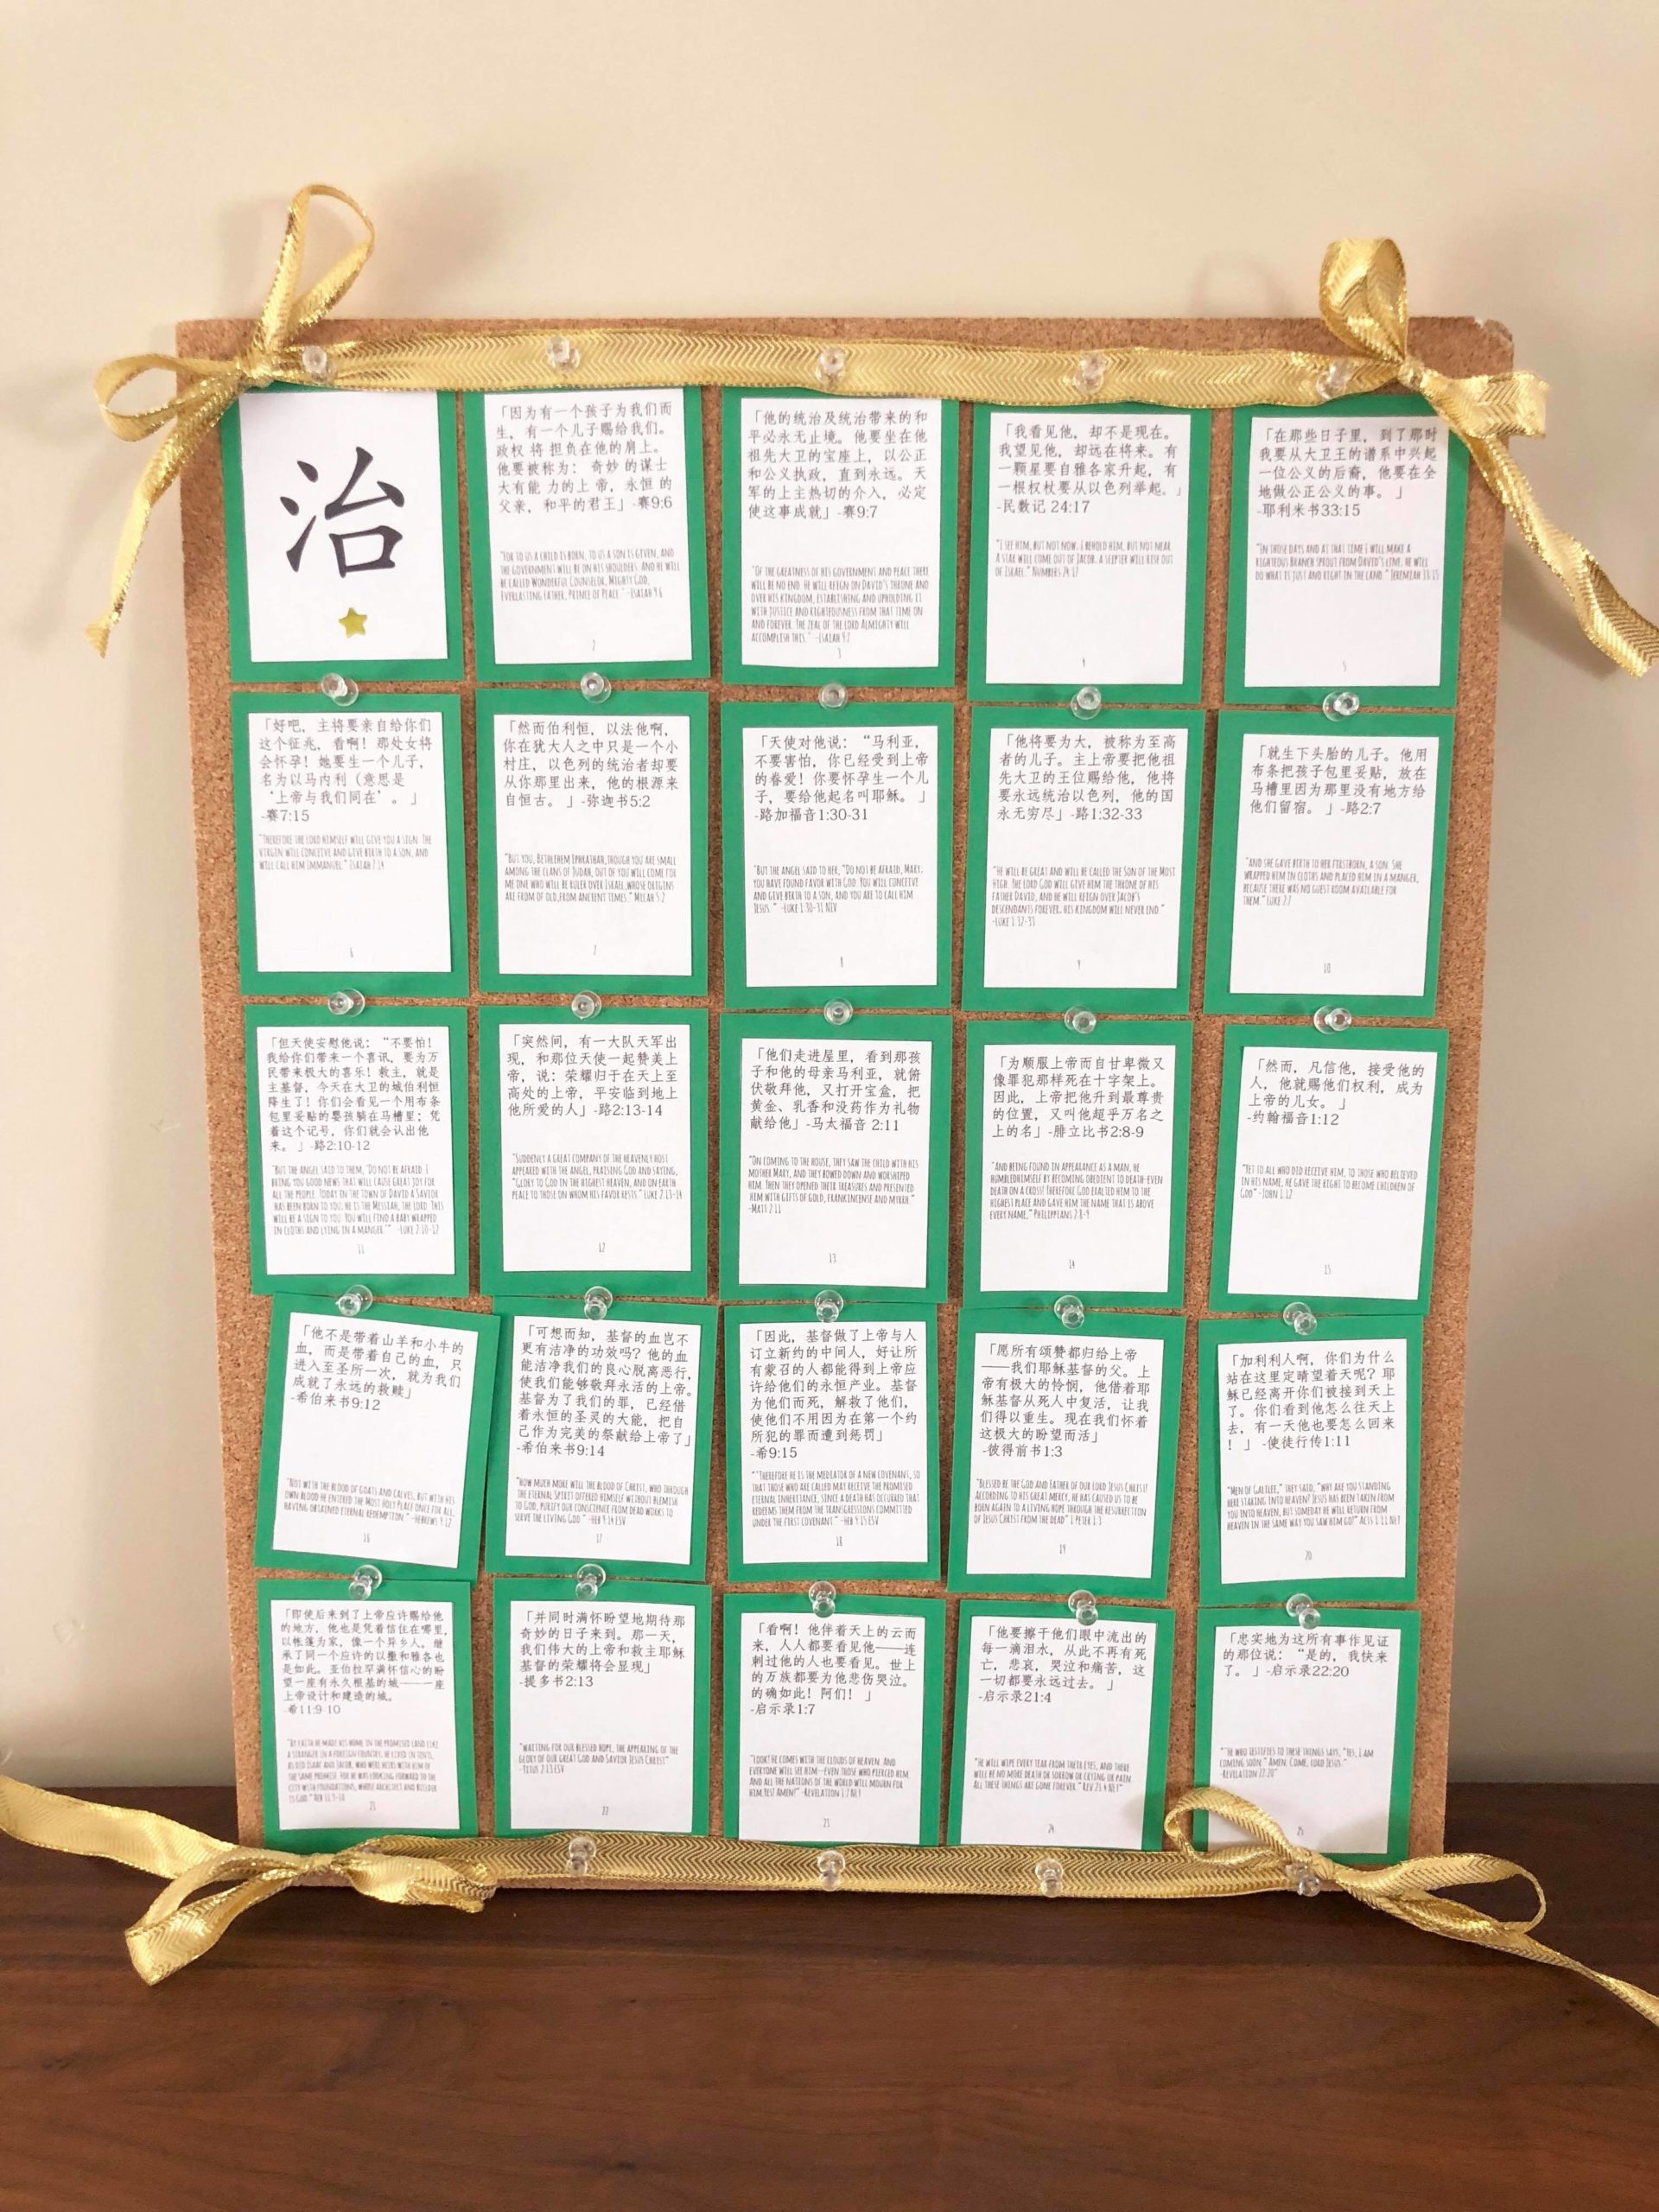 治
「因为有一个孩子为我们而
生，有一个儿子赐给我们。
政权 将 担负在他的肩上。
他要被称为： 奇妙 的谋士
大有能 力的上 帝，永恒 的
父亲，和平的君王」-赛9:6
"FOR TO US A CHILD IS BORN, TO US A SON IS GIVEN, AND
THE GOVERNMENT WILL BE ON HIS SHOULDERS. AND HE WILL
BE CALLED WONDERFUL COUNSELOR, MIGHTY GOD,
EVERLASTING FATHER, PRINCE OF PEACE." -ISAIAH 9:6
2
「他的统治及统治带来的和
平必永无止境。他要坐在他
祖先大卫的宝座上，以公正
和公义执政，直到永远。天
军的上主热切的介入，必定
使这事成就」-赛9:7
"OF THE GREATNESS OF HIS GOVERNMENT AND PEACE THERE
WILL BE NO END. HE WILL REIGN ON DAVID'S THRONE AND
OVER HIS KINGDOM, ESTABLISHING AND UPHOLDING IT
WITH JUSTICE AND RIGHTEOUSNESS FROM THAT TIME ON
AND FOREVER. THE ZEAL OF THE LORD ALMIGHTY WILL
ACCOMPLISH THIS." -ISAIAH 9:7
3
「我看见他，却不是现在。
我望见他，却远在将来。有
一颗星要自雅各家升起，有
一根权杖要从以色列举起。」
-民数记 24:17
"I SEE HIM, BUT NOT NOW. I BEHOLD HIM, BUT NOT NEAR.
A STAR WILL COME OUT OF JACOB. A SCEPTER WILL RISE OUT
OF ISRAEL." NUMBERS 24:17
4
「在那些日子里，到了那时
我要从大卫王的谱系中兴起
一位公义的后裔，他要在全
地做公正公义的事。 」
-耶利米书33:15
"IN THOSE DAYS AND AT THAT TIME I WILL MAKE A
RIGHTEOUS BRANCH SPROUT FROM DAVID'S LINE. HE WILL
DO WHAT IS JUST AND RIGHT IN THE LAND." JEREMIAH 33:15
5
「好吧，主将要亲自给你们
这个征兆，看啊！那处女将
会怀孕！她要生一个儿子，
名为以马内利（意思是
‘上帝与我们同在’。 」
-赛7:15
"THEREFORE THE LORD HIMSELF WILL GIVE YOU A SIGN: THE
VIRGIN WILL CONCEIVE AND GIVE BIRTH TO A SON, AND
WILL CALL HIM EMMANUEL." ISAIAH 7:14
6
「然而伯利恒，以法他啊，
你在犹大人之中只是一个小
村庄，以色列的统治者却要
从你那里出来，他的根源来
自恒古。 」-弥迦书5:2
"BUT YOU, BETHLEHEM EPHRATHAH,THOUGH YOU ARE SMALL
AMONG THE CLANS OF JUDAH, OUT OF YOU WILL COME FOR
ME ONE WHO WILL BE RULER OVER ISRAEL,WHOSE ORIGINS
ARE FROM OF OLD,FROM ANCIENT TIMES." MICAH 5:2
7
「天使对他说：“马利亚，
不要害怕，你已经受到上帝
的眷爱！你要怀孕生一个儿
子，要给他起名叫耶稣。 」
-路加福音1:30-31
"BUT THE ANGEL SAID TO HER, "DO NOT BE AFRAID, MARY,
YOU HAVE FOUND FAVOR WITH GOD. YOU WILL CONCEIVE
AND GIVE BIRTH TO A SON, AND YOU ARE TO CALL HIM
JESUS." -LUKE 1:30-31 NIV
8
「他将要为大，被称为至高
者的儿子。主上帝要把他祖
先大卫的王位赐给他，他将
要永远统治以色列，他的国
永无穷尽」-路1:32-33
"HE WILL BE GREAT AND WILL BE CALLED THE SON OF THE MOST
HIGH. THE LORD GOD WILL GIVE HIM THE THRONE OF HIS
FATHER DAVID, AND HE WILL REIGN OVER JACOB'S
DESCENDANTS FOREVER; HIS KINGDOM WILL NEVER END."
-LUKE 1:32-33
9
「就生下头胎的儿子。他用
布条把孩子包里妥贴，放在
马槽里因为那里没有地方给
他们留宿。 」-路2:7
"AND SHE GAVE BIRTH TO HER FIRSTBORN, A SON. SHE
WRAPPED HIM IN CLOTHS AND PLACED HIM IN A MANGER,
BECAUSE THERE WAS NO GUEST ROOM AVAILABLE FOR
THEM." LUKE 2:7
10
「但天使安慰他说：“不要怕！
我给你们带来一个喜讯，要为万
民带来极大的喜乐！救主，就是
主基督，今天在大卫的城伯利恒
降生了！你们会看见一个用布条
包里妥贴的婴孩躺在马槽里；凭
着这个记号，你们就会认出他
来。 」-路2:10-12
"BUT THE ANGEL SAID TO THEM, "DO NOT BE AFRAID. I
BRING YOU GOOD NEWS THAT WILL CAUSE GREAT JOY FOR
ALL THE PEOPLE. TODAY IN THE TOWN OF DAVID A SAVIOR
HAS BEEN BORN TO YOU; HE IS THE MESSIAH, THE LORD. THIS
WILL BE A SIGN TO YOU: YOU WILL FIND A BABY WRAPPED
IN CLOTHS AND LYING IN A MANGER." -LUKE 2:10-12
11
「突然间，有一大队天军出
现，和那位天使一起赞美上
帝，说：荣耀归于在天上至
高处的上帝，平安临到地上
他所爱的人」-路2:13-14
"SUDDENLY A GREAT COMPANY OF THE HEAVENLY HOST
APPEARED WITH THE ANGEL, PRAISING GOD AND SAYING,
"GLORY TO GOD IN THE HIGHEST HEAVEN, AND ON EARTH
PEACE TO THOSE ON WHOM HIS FAVOR RESTS." LUKE 2:13-14
12
「他们走进屋里，看到那孩
子和他的母亲马利亚，就俯
伏敬拜他，又打开宝盒，把
黄金、乳香和没药作为礼物
献给他」-马太福音 2:11
"ON COMING TO THE HOUSE, THEY SAW THE CHILD WITH HIS
MOTHER MARY, AND THEY BOWED DOWN AND WORSHIPED
HIM. THEN THEY OPENED THEIR TREASURES AND PRESENTED
HIM WITH GIFTS OF GOLD, FRANKINCENSE AND MYRRH."
-MATT 2:11
13
「为顺服上帝而自甘卑微又
像罪犯那样死在十字架上。
因此，上帝把他升到最尊贵
的位置，又叫他超乎万名之
上的名」-腓立比书2:8-9
"AND BEING FOUND IN APPEARANCE AS A MAN, HE
HUMBLEDHIMSELF BY BECOMING OBEDIENT TO DEATH-EVEN
DEATH ON A CROSS! THEREFORE GOD EXALTED HIM TO THE
HIGHEST PLACE AND GAVE HIM THE NAME THAT IS ABOVE
EVERY NAME," PHILIPPIANS 2:8-9
14
「然而，凡信他，接受他的
人，他就赐他们权利，成为
上帝的儿女。 」
-约翰福音1:12
"YET TO ALL WHO DID RECEIVE HIM, TO THOSE WHO BELIEVED
IN HIS NAME, HE GAVE THE RIGHT TO BECOME CHILDREN OF
GOD" -JOHN 1:12
15
「他不是带着山羊和小牛的
血，而是带着自己的血，只
进入至圣所一次，就为我们
成就了永远的救赎」
-希伯来书9:12
"NOT WITH THE BLOOD OF GOATS AND CALVES, BUT WITH HIS
OWN BLOOD HE ENTERED THE MOST HOLY PLACE ONCE FOR ALL,
HAVING OBTAINED ETERNAL REDEMPTION." -HEBREWS 9:12
16
「可想而知，基督的血岂不
更有洁净的功效吗？他的血
能洁净我们的良心脱离恶行，
使我们能够敬拜永活的上帝。
基督为了我们的罪，已经借
着永恒的圣灵的大能，把自
己作为完美的祭献给上帝了」
-希伯来书9:14
"HOW MUCH MORE WILL THE BLOOD OF CHRIST, WHO THROUGH
THE ETERNAL SPIRIT OFFERED HIMSELF WITHOUT BLEMISH
TO GOD, PURIFY OUR CONSCIENCE FROM DEAD WORKS TO
SERVE THE LIVING GOD." -HEB 9:14 ESV
17
「因此，基督做了上帝与人
订立新约的中间人，好让所
有蒙召的人都能得到上帝应
许给他们的永恒产业。基督
为他们而死，解救了他们，
使他们不用因为在第一个约
所犯的罪而遭到惩罚」
-希9:15
"THEREFORE HE IS THE MEDIATOR OF A NEW COVENANT, SO
THAT THOSE WHO ARE CALLED MAY RECEIVE THE PROMISED
ETERNAL INHERITANCE, SINCE A DEATH HAS OCCURRED THAT
REDEEMS THEM FROM THE TRANSGRESSIONS COMMITTED
UNDER THE FIRST COVENANT." -HEB 9:15 ESV
18
「愿所有颂赞都归给上帝
——我们耶稣基督的父。上
帝有极大的怜悯，他借着耶
稣基督从死人中复活，让我
们得以重生。现在我们怀着
这极大的盼望而活」
-彼得前书1:3
"BLESSED BE THE GOD AND FATHER OF OUR LORD JESUS CHRIST!
ACCORDING TO HIS GREAT MERCY, HE HAS CAUSED US TO BE
BORN AGAIN TO A LIVING HOPE THROUGH THE RESURRECTION
OF JESUS CHRIST FROM THE DEAD" 1 PETER 1:3
19
「加利利人啊，你们为什么
站在这里定晴望着天呢？耶
稣已经离开你们被接到天上
了。你们看到他怎么往天上
去，有一天他也要怎么回来
！ 」-使徒行传1:11
"MEN OF GALILEE," THEY SAID, "WHY ARE YOU STANDING
HERE STARING INTO HEAVEN? JESUS HAS BEEN TAKEN FROM
YOU INTO HEAVEN, BUT SOMEDAY HE WILL RETURN FROM
HEAVEN IN THE SAME WAY YOU SAW HIM GO!" ACTS 1:11 NLT
20
「即使后来到了上帝应许赐给他
的地方，他也是凭着信住在哪里，
以帐篷为家，像一个异乡人。继
承了同一个应许的以撒和雅各也
是如此。亚伯拉罕满怀信心的盼
望一座有永久根基的城——一座
上帝设计和建造的城。
-希11:9-10
"BY FAITH HE MADE HIS HOME IN THE PROMISED LAND LIKE
A STRANGER IN A FOREIGN COUNTRY; HE LIVED IN TENTS,
AS DID ISAAC AND JACOB, WHO WERE HEIRS WITH HIM OF
THE SAME PROMISE. FOR HE WAS LOOKING FORWARD TO THE
CITY WITH FOUNDATIONS, WHOSE ARCHITECT AND BUILDER
IS GOD." HEB 11:9-10
21
「并同时满怀盼望地期待那
奇妙的日子来到。那一天，
我们伟大的上帝和救主耶稣
基督的荣耀将会显现」
-提多书2:13
"WAITING FOR OUR BLESSED HOPE, THE APPEARING OF THE
GLORY OF OUR GREAT GOD AND SAVIOR JESUS CHRIST"
-TITUS 2:13 ESV
22
「看啊！他伴着天上的云而
来，人人都要看见他——连
刺过他的人也要看见。世上
的万族都要为他悲伤哭泣。
的确如此！阿们！ 」
-启示录1:7
"LOOK! HE COMES WITH THE CLOUDS OF HEAVEN. AND
EVERYONE WILL SEE HIM--EVEN THOSE WHO PIERCED HIM.
AND ALL THE NATIONS OF THE WORLD WILL MOURN FOR
HIM.YES! AMEN!" -REVELATION 1:7 NLT
23
「他要擦干他们眼中流出的
每一滴泪水，从此不再有死
亡，悲哀，哭泣和痛苦，这
一切都要永远过去。 」
-启示录21:4
"HE WILL WIPE EVERY TEAR FROM THEIR EYES, AND THERE
WILL BE NO MORE DEATH OR SORROW OR CRYING OR PAIN.
ALL THESE THINGS ARE GONE FOREVER." REV 21:4 NLT
24
「忠实地为这所有事作见证
的那位说：“是的，我快来
了。 」-启示录22:20
"HE WHO TESTIFIES TO THESE THINGS SAYS, "YES, I AM
COMING SOON." AMEN. COME, LORD JESUS."
-REVELATION 22:20
25